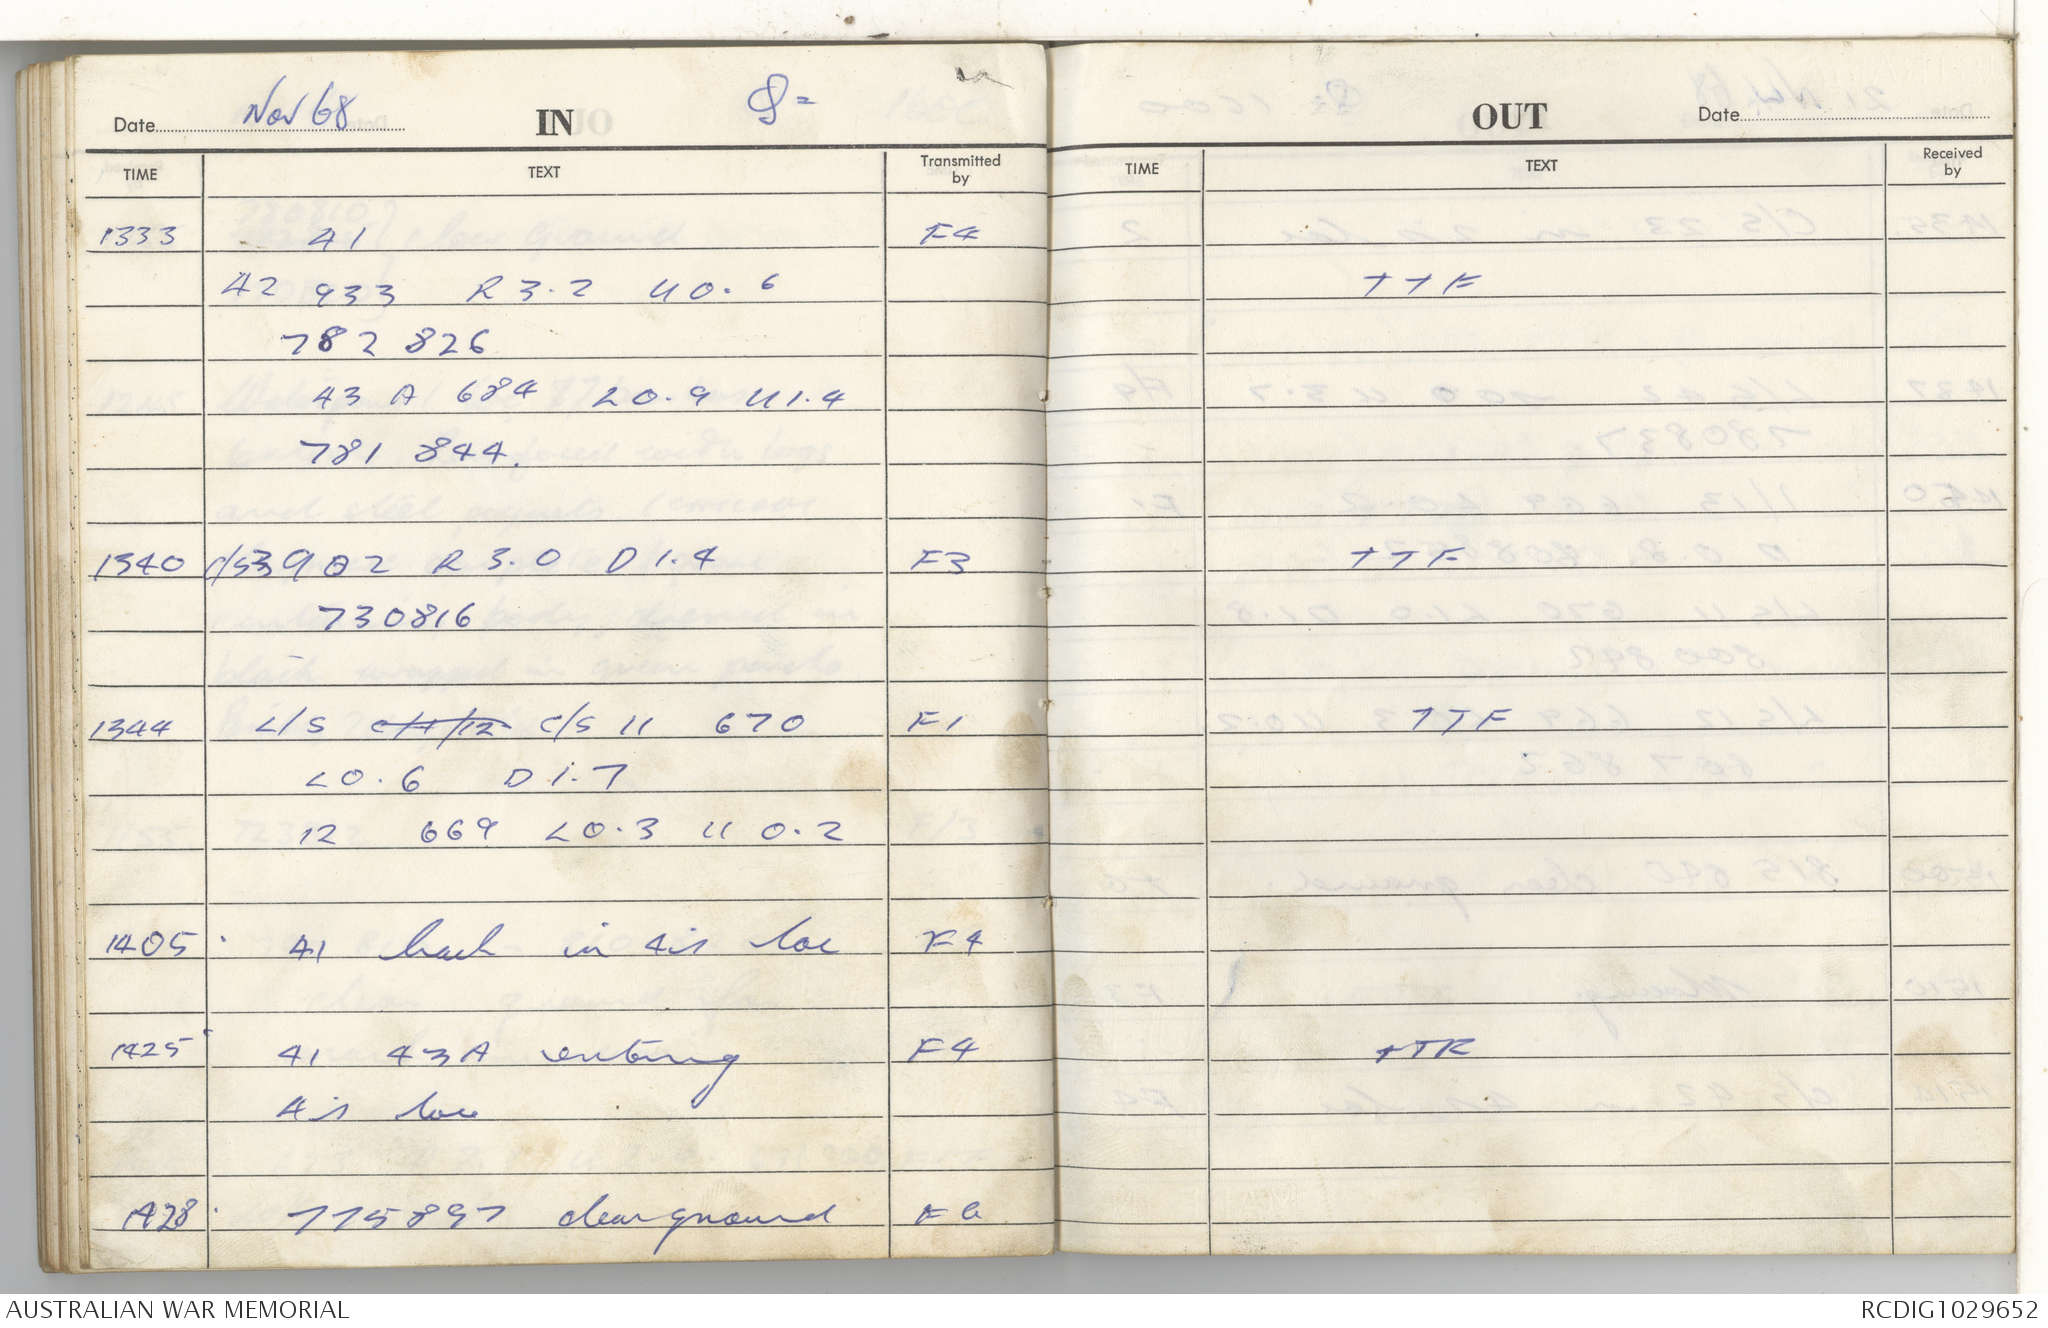 Date Nov 68 IN
TIME TEXT Transmitted by
1333 41 F4
42 933 R 3.2 U 0.6
782 826
43 A 684 L0.9 U1.4
781 844.
1340 C/S 902 R 3.0 D 1.4 F3
730816
1344 L/S C/S 11 670 F1
L0.6 D 1.7
12 669 L0.3 U 0.2
1405 41 back in 4is loc F4
1425 41 43A entering F4
4is loc
1428 775897 clear ground F6
OUT Date
TIME TEXT Received by
TTF
TTF
TTF
TTR
AUSTRALIAN WAR MEMORIAL
RCDIG1029652